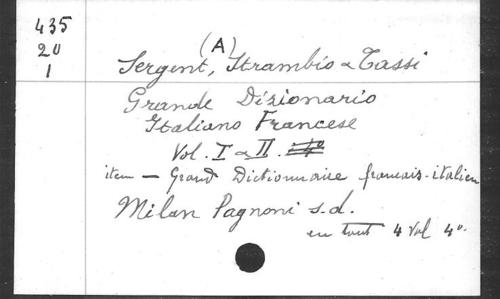 435
20
1
(A)
Sergent, Strambio & Tassi
Grande Dizionario
Italiano Francese
Vol. I & II.
item — Grand Dictionnaire francais-italien
Milan Pagnoni s.d.
en tout 4 Vol 4o.